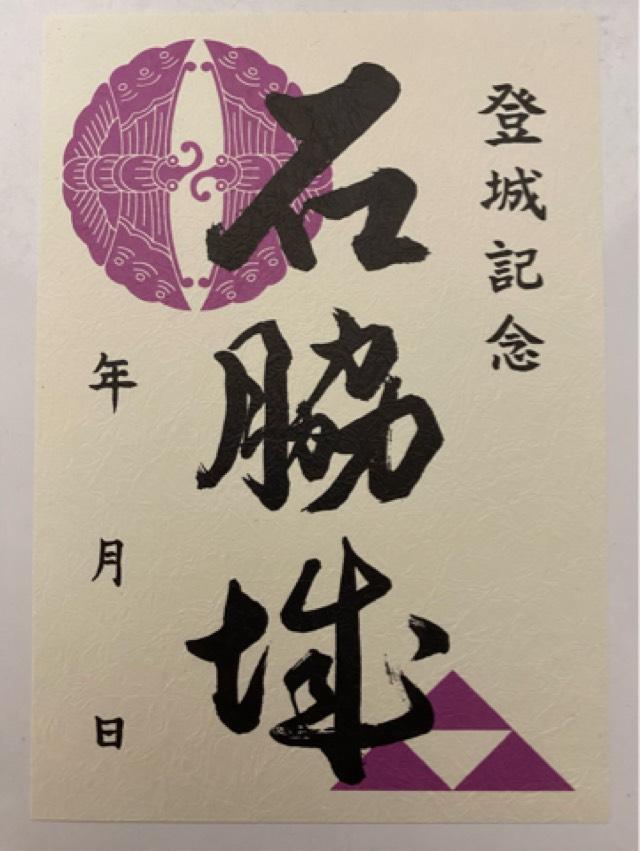 登城記念
石脇城
年 月 日